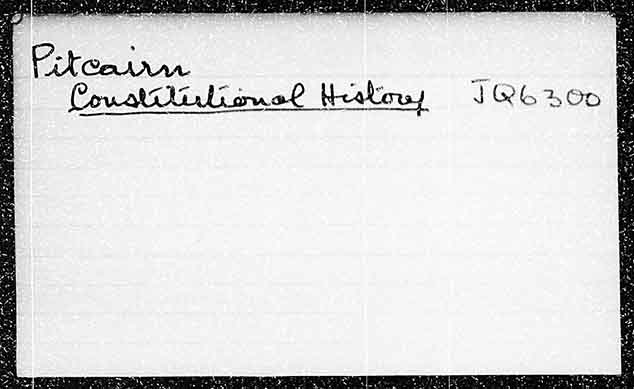 Pitcairn
Constitutional History JQ6300